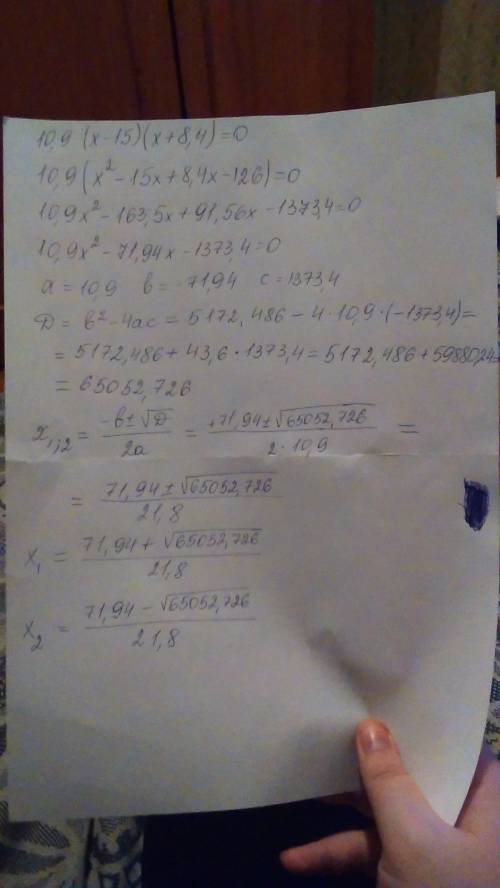 10,9 (x-15)(x+8,4)=0
10,9(x²-15x+8,4x-126)=0
10,9x²-163,5x+91,56x-1373,4=0
10,9x²-71,94x-1373,4=0
a=10,9 b=-71,94 c=1373,4
Д=b²-4ac=5172,486-4·10,9·(-1373,4)=
=5172,486+43,6·1373,4=5172,486+59880,24=
=65052,726
x₁,₂=(-b±√Д)/2a=(+71,94±√65052,726)/(2·10,9)=
=(71,94±√65052,726)/21,8
x₁=(71,94+√65052,726)/21,8
x₂=(71,94-√65052,726)/21,8